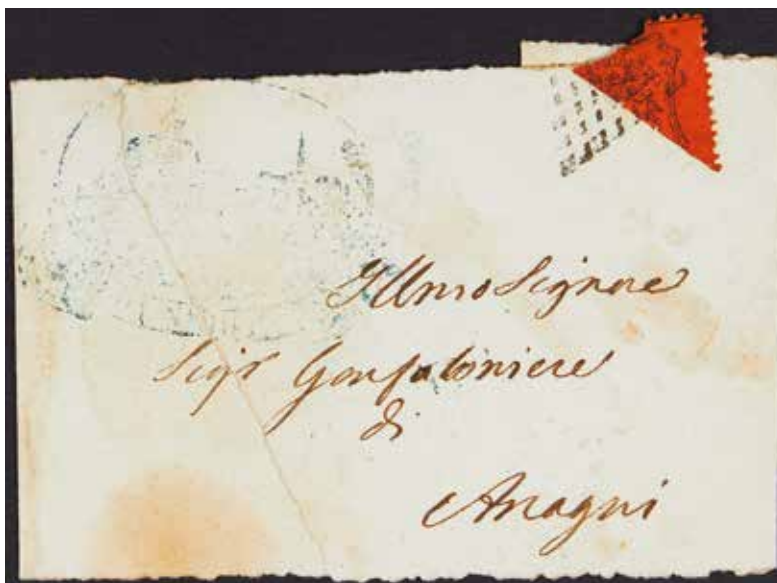 Illmo Signore
Sigr Gonfaloniere
di
Anagni